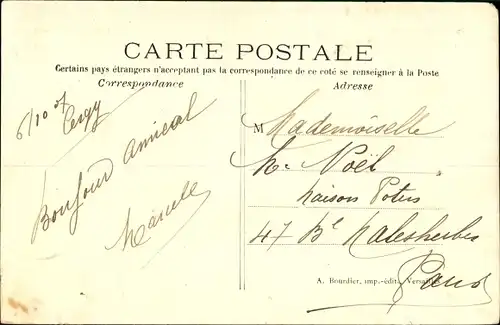 CARTE POSTALE
Certains pays étrangers n'acceptant pas la correspondance de ce coté se renseigner à la Poste
Correspondance
Adresse
6/10 07
Cergy
Bonjour amical
Marcelle
M Mademoiselle
M. Noël
Maison Potin
47 Bd Malesherbes
Paris
A. Bourdier, imp.-édit. Versailles